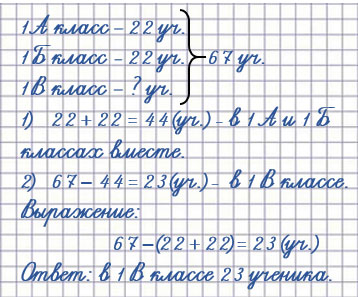 1 А класс – 22 уч.
1 Б класс – 22 уч. 67 уч.
1 В класс – ? уч.
1) 22 + 22 = 44 (уч.) – в 1 А и 1 Б
классах вместе.
2) 67 – 44 = 23 (уч.) – в 1 В классе.
Выражение:
67 – (22 + 22) = 23 (уч.)
Ответ: в 1 В классе 23 ученика.